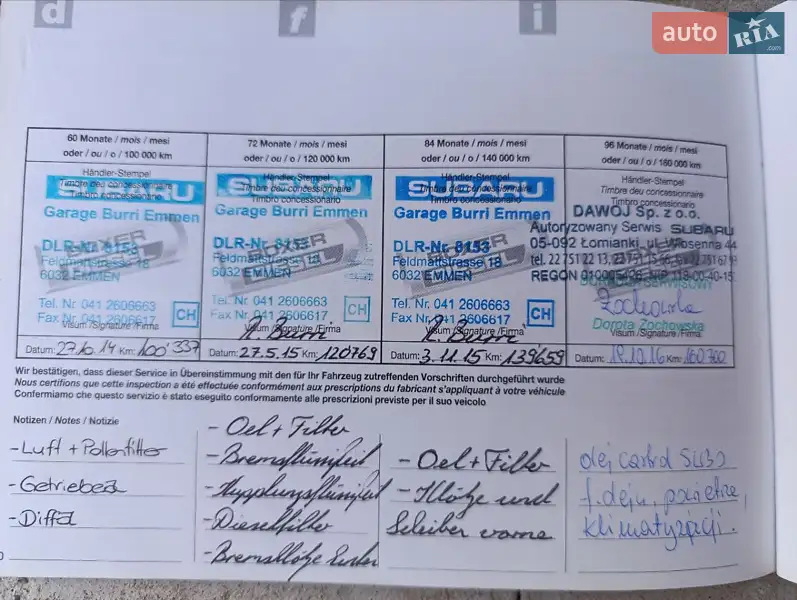 d f i
auto RIA .com
60 Monate / mois / mesi
oder / ou / o / 100 000 km
Händler-Stempel
Timbre deu concessionnaire
Timbro concessionario
SUBARU
Garage Burri Emmen
DLR-Nr. 8153
Feldmattstrasse 18
6032 EMMEN
Tel. Nr. 041 2606663
Fax Nr. 041 2606617
CH
Visum / Signature / Firma
Datum: 27.10.14 Km: 100'337
72 Monate / mois / mesi
oder / ou / o / 120 000 km
Händler-Stempel
Timbre deu concessionnaire
Timbro concessionario
SUBARU
Garage Burri Emmen
DLR-Nr. 8153
Feldmattstrasse 18
6032 EMMEN
Tel. Nr. 041 2606663
Fax Nr. 041 2606617
CH
Visum / Signature / Firma
R. Burri
Datum: 27.5.15 Km: 120769
84 Monate / mois / mesi
oder / ou / o / 140 000 km
Händler-Stempel
Timbre deu concessionnaire
Timbro concessionario
SUBARU
Garage Burri Emmen
DLR-Nr. 8153
Feldmattstrasse 18
6032 EMMEN
Tel. Nr. 041 2606663
Fax Nr. 041 2606617
CH
Visum / Signature / Firma
R. Burri
Datum: 3.11.15 Km: 139659
96 Monate / mois / mesi
oder / ou / o / 160 000 km
Händler-Stempel
Timbre deu concessionnaire
Timbro concessionario
DAWOJ Sp. z o.o.
Autoryzowany Serwis SUBARU
05-092 Łomianki, ul. Wiosenna 44
tel. 22 751 22 13
REGON 010005406, NIP 118-00-40-15
Żochowska
Dorota Żochowska
Visum / Signature / Firma
Datum: 18.10.16 Km: 160 360
Wir bestätigen, dass dieser Service in Übereinstimmung mit den für Ihr Fahrzeug zutreffenden Vorschriften durchgeführt wurde
Nous certifions que cette inspection a été effectuée conformément aux prescriptions du fabricant s'appliquant à votre véhicule
Confermiamo che questo servizio è stato eseguito conformamente alle prescrizioni previste per il suo veicolo
Notizen / Notes / Notizie
- Luft + Pollenfilter
- Getriebeöl
- Difföl
- Oel + Filter
- Bremsflüssigkeit
- Kupplungsflüssigkeit
- Dieselfilter
- Bremsklötze hinten
- Oel + Filter
- Klötze und
Scheiben vorne
olej castrol SW30
f. oleju, powietrza,
klimatyzacji.